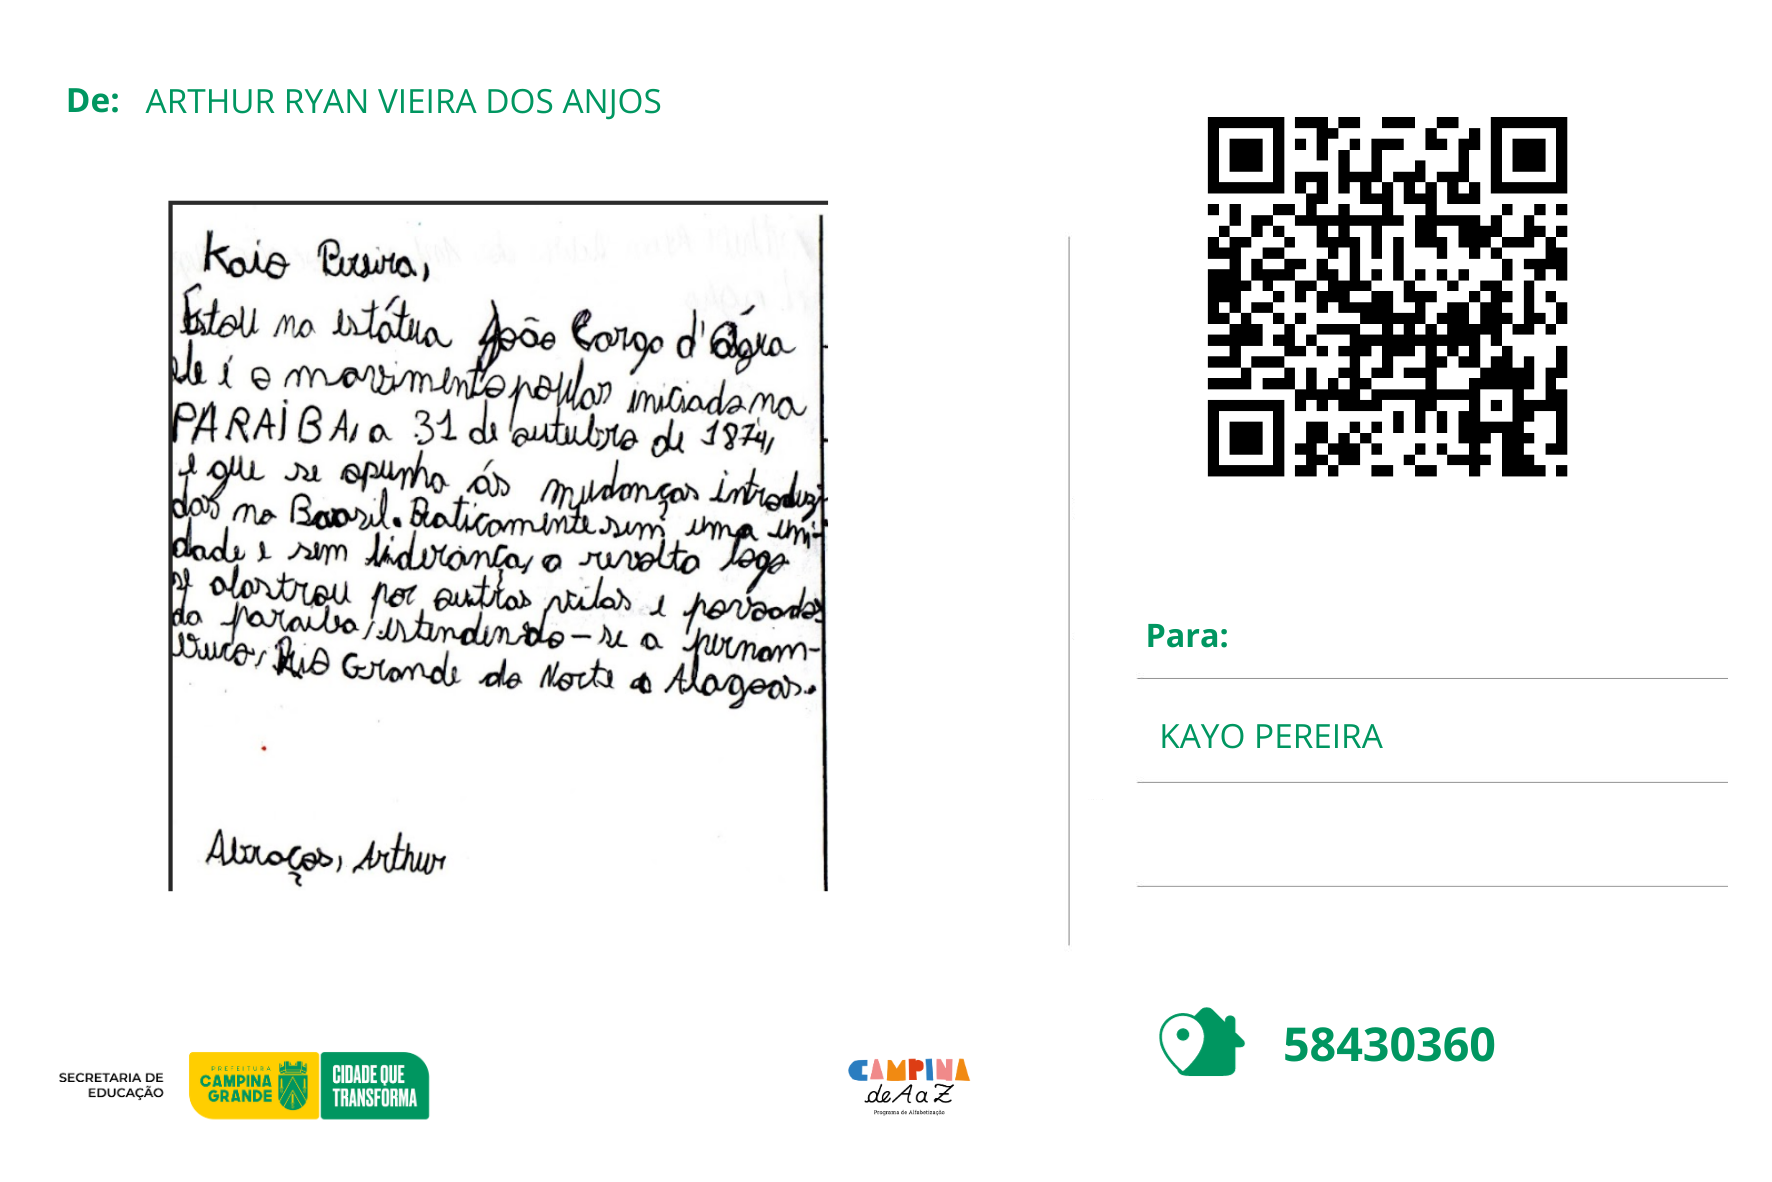 De: ARTHUR RYAN VIEIRA DOS ANJOS
Kaio Pereira,
Estou na estátua João Cargo d'água
ele é o movimento popular iniciada na
PARAÍBA, a 31 de outubro de 1874,
e que se opunha ás mudanças introduzi-
das no Brasil. Praticamente sem uma uni-
dade e sem liderança, a revolta logo
se alastrou por outras vilas e povoados
da paraíba, estendendo-se a pernam-
buco, Rio Grande do Norte a Alagoas.
Abraços, Arthur
Para:
KAYO PEREIRA
58430360
SECRETARIA DE
EDUCAÇÃO
PREFEITURA
CAMPINA
GRANDE
CIDADE QUE
TRANSFORMA
CAMPINA
de A a Z
Programa de Alfabetização